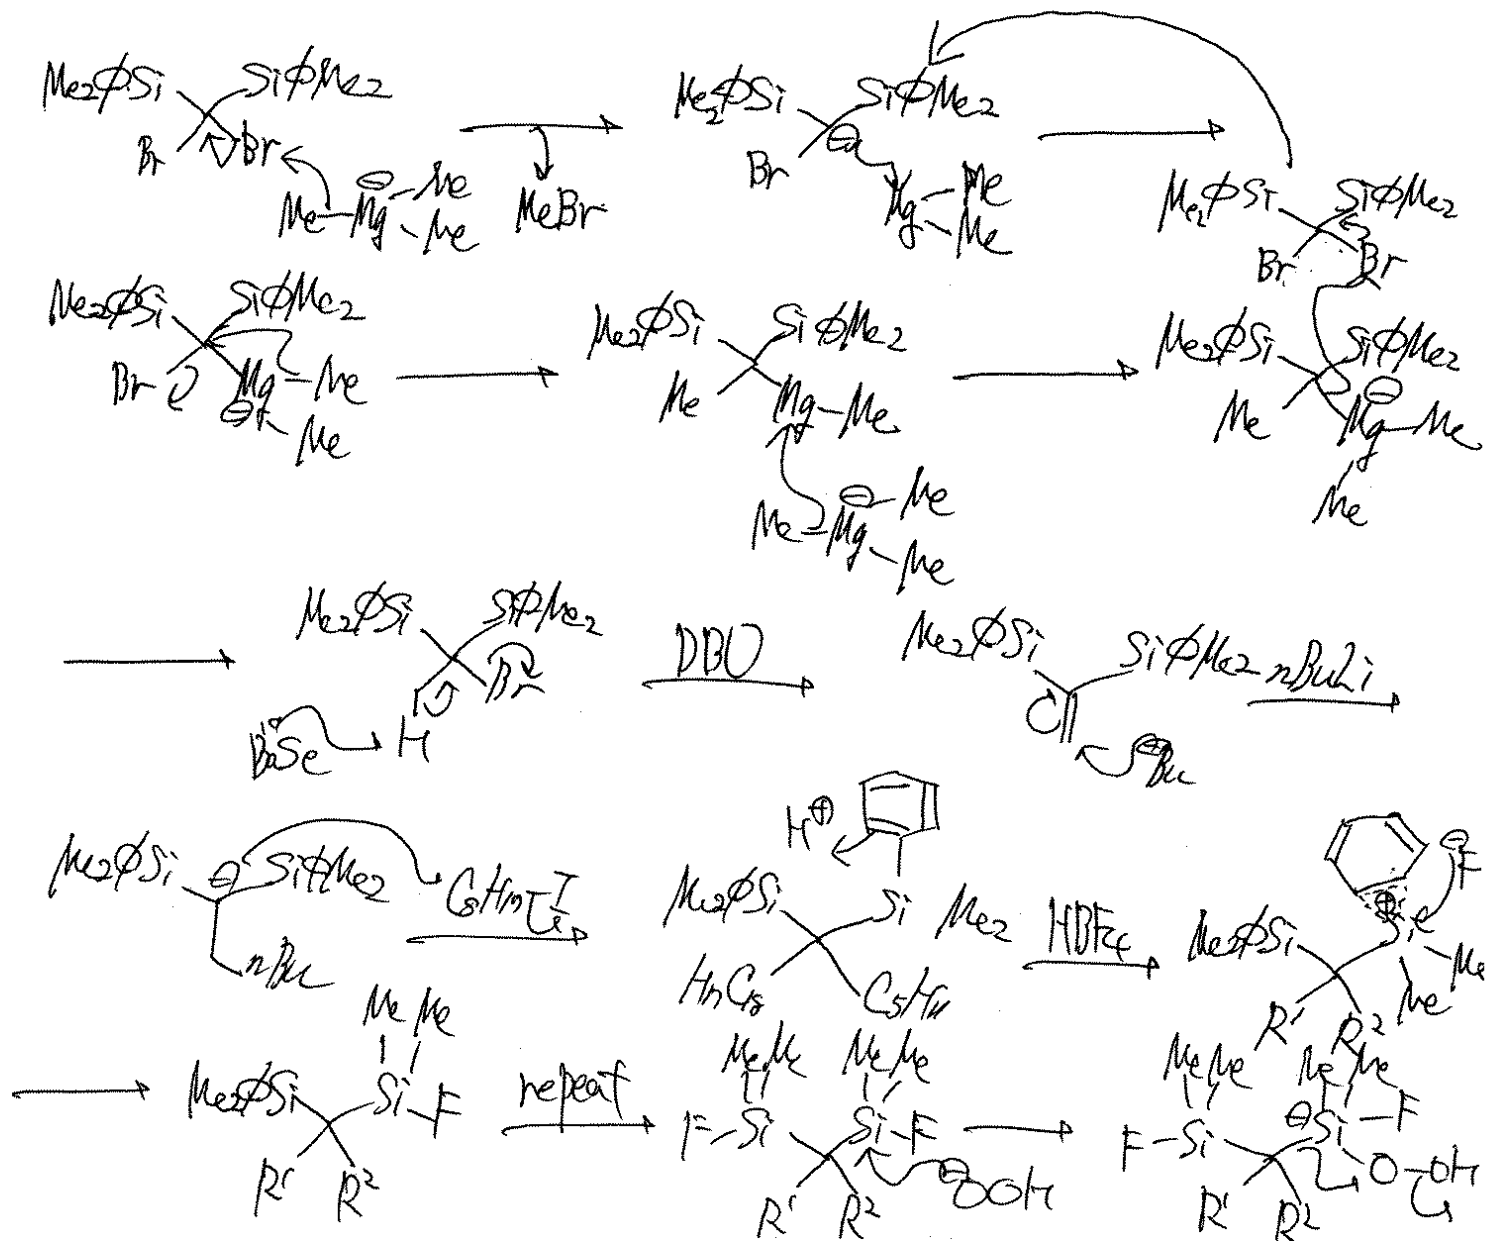 Me2ΦSi SiΦMe2
Br Br
Me-Mg-Me
Me
⊖
MeBr
Me2ΦSi SiΦMe2
Br ⊖
Mg-Me
Me
Me2ΦSi SiΦMe2
Br Br
Me2ΦSi SiΦMe2
Br Mg-Me
⊖ Me
Me2ΦSi SiΦMe2
Me Mg-Me
Me-Mg-Me
⊖ Me
Me2ΦSi SiΦMe2
Me ⊖ Mg-Me
Me
Me2ΦSi SiΦMe2
Br
Base H
DBU
Me2ΦSi SiΦMe2
⊖Bu
nBuLi
Me2ΦSi ⊖ SiΦMe2
nBu
I
H⊕
Me2ΦSi Si Me2
C5H11
HBF4
⊖F
Me2ΦSi ⊕ Si Me
Me
R1 R2
Me Me
Me2ΦSi Si-F
R1 R2
repeat
Me Me Me Me
F-Si Si-F
R1 R2
⊖OOH
Me Me Me Me
F-Si ⊖Si-F
O-OH
R1 R2